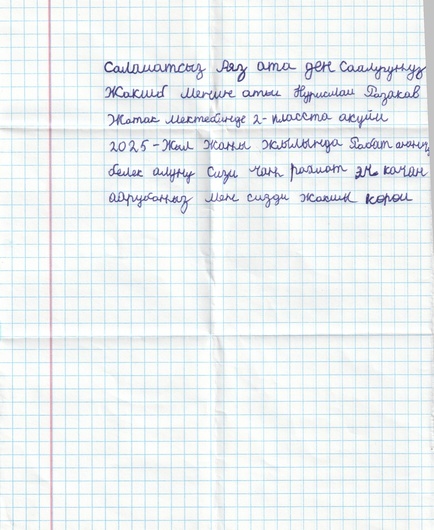 Саламатсыз Аяз ата ден Саалугунуз
Жакшб Менин атым Нурислам Разаков
Жатак Мектебинде 2-класста акуйм
2025-Жыл Жаны Жылында Рабат
белек алуну Сизи Чоң рахмат эч качан
аарубаныз мен сизди жакшы көрөм